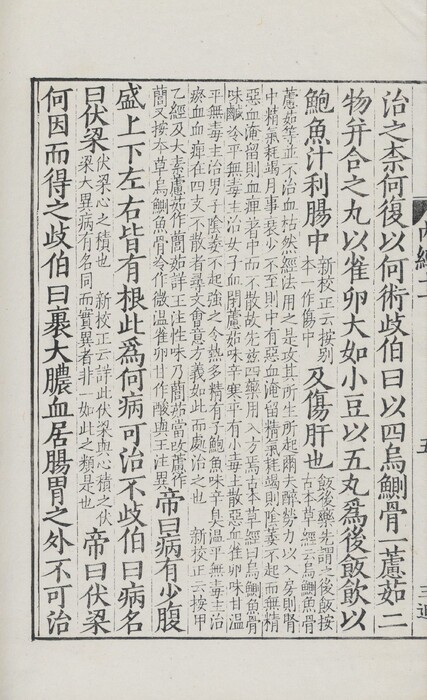 治之柰何復以何術歧伯曰以四烏鰂骨一藘茹二
物并合之丸以雀卵大如小豆以五丸爲後飯飲以
鮑魚汁利腸中
新校正云按别
本一作傷中
及傷肝也
飯後藥先謂之後飯按
古本草經云烏鰂魚骨
藘茹等並不治血枯然經法用之是攻其所生所起爾夫醉勞力以入房則腎
中精氣耗竭月事衰少不至則中有惡血淹留精氣耗竭則陰萎不起而無精
惡血淹留則血痺著中而不散故先兹四藥用入方焉古本草經曰烏鰂魚骨
味鹹冷平無毒主治女子血閉藘茹味辛寒平有小毒主散惡血雀卵味甘温
平無毒主治男子陰萎不起強之令熱多精有子鮑魚味辛臭温平無毒主治
瘀血血痺在四支不散者尋文會意方義如此而處治之也 新校正云按甲
乙經及太素藘茹作䕡茹詳王注性味乃䕡茹當改藘作
䕡又按本草烏鰂魚骨冷作微温雀卵甘作酸與王注異
帝曰病有少腹
盛上下左右皆有根此爲何病可治不歧伯曰病名
曰伏梁
伏梁心之積也 新校正云詳此伏梁與心積之伏
梁大異病有名同而實異者非一如此之類是也
帝曰伏梁
何因而得之歧伯曰裹大膿血居腸胃之外不可治
内經二
五